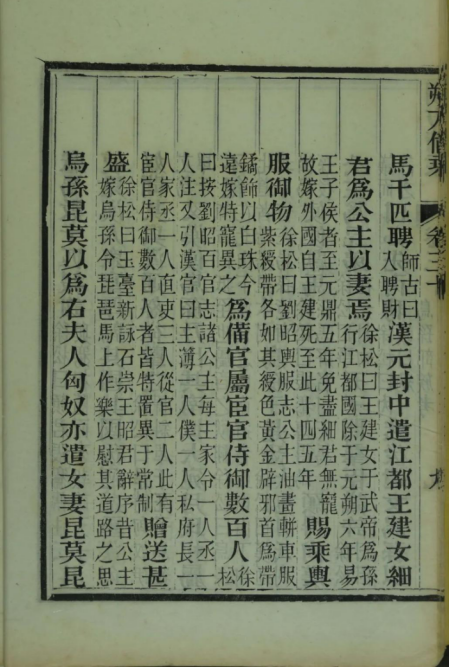 馬千匹聘師古曰入聘財漢元封中遣江都王建女細
君爲公主以妻焉徐松曰王建女于武帝爲孫
行江都國除于元朔六年易
王子侯者至元鼎五年免盡細君無寵
故嫁外國自王建死至此十四五年賜乘輿
服御物徐松曰劉昭輿服志公主油畫軿車服
紫綬帶各如其綬色黃金辟邪首爲帶
鐍飾以白珠今
遠嫁特寵異之爲備官屬宦官侍御數百人徐松
曰按劉昭百官志諸公主每主家令一人丞一
人注又引漢官曰主薄一人僕一人私府長一
人家丞一人直吏三人從官二人此有
宦官侍御數百人者皆特置異于常制贈送甚
盛徐松曰玉臺新詠石崇王昭君辭序昔公主
嫁烏孫令琵琶馬上作樂以慰其道路之思
烏孫昆莫以爲右夫人匈奴亦遣女妻昆莫昆